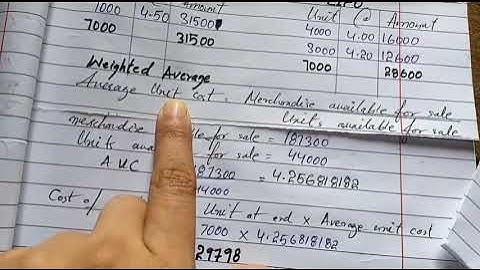 LIFO
1000 4-50 31500
7000 31500
Unit @ Amount
4000 4.00 16000
3000 4.20 12600
7000 28600
Weighted Average
Average Unit Cost = Merchandise available for sale
Units available for sale
merchandise for sale = 187300
Units for sale = 44000
AUC 187300 = 4.256818182
44000
Cost of Unit at end x Average unit cost
7000 x 4.256818182
29798